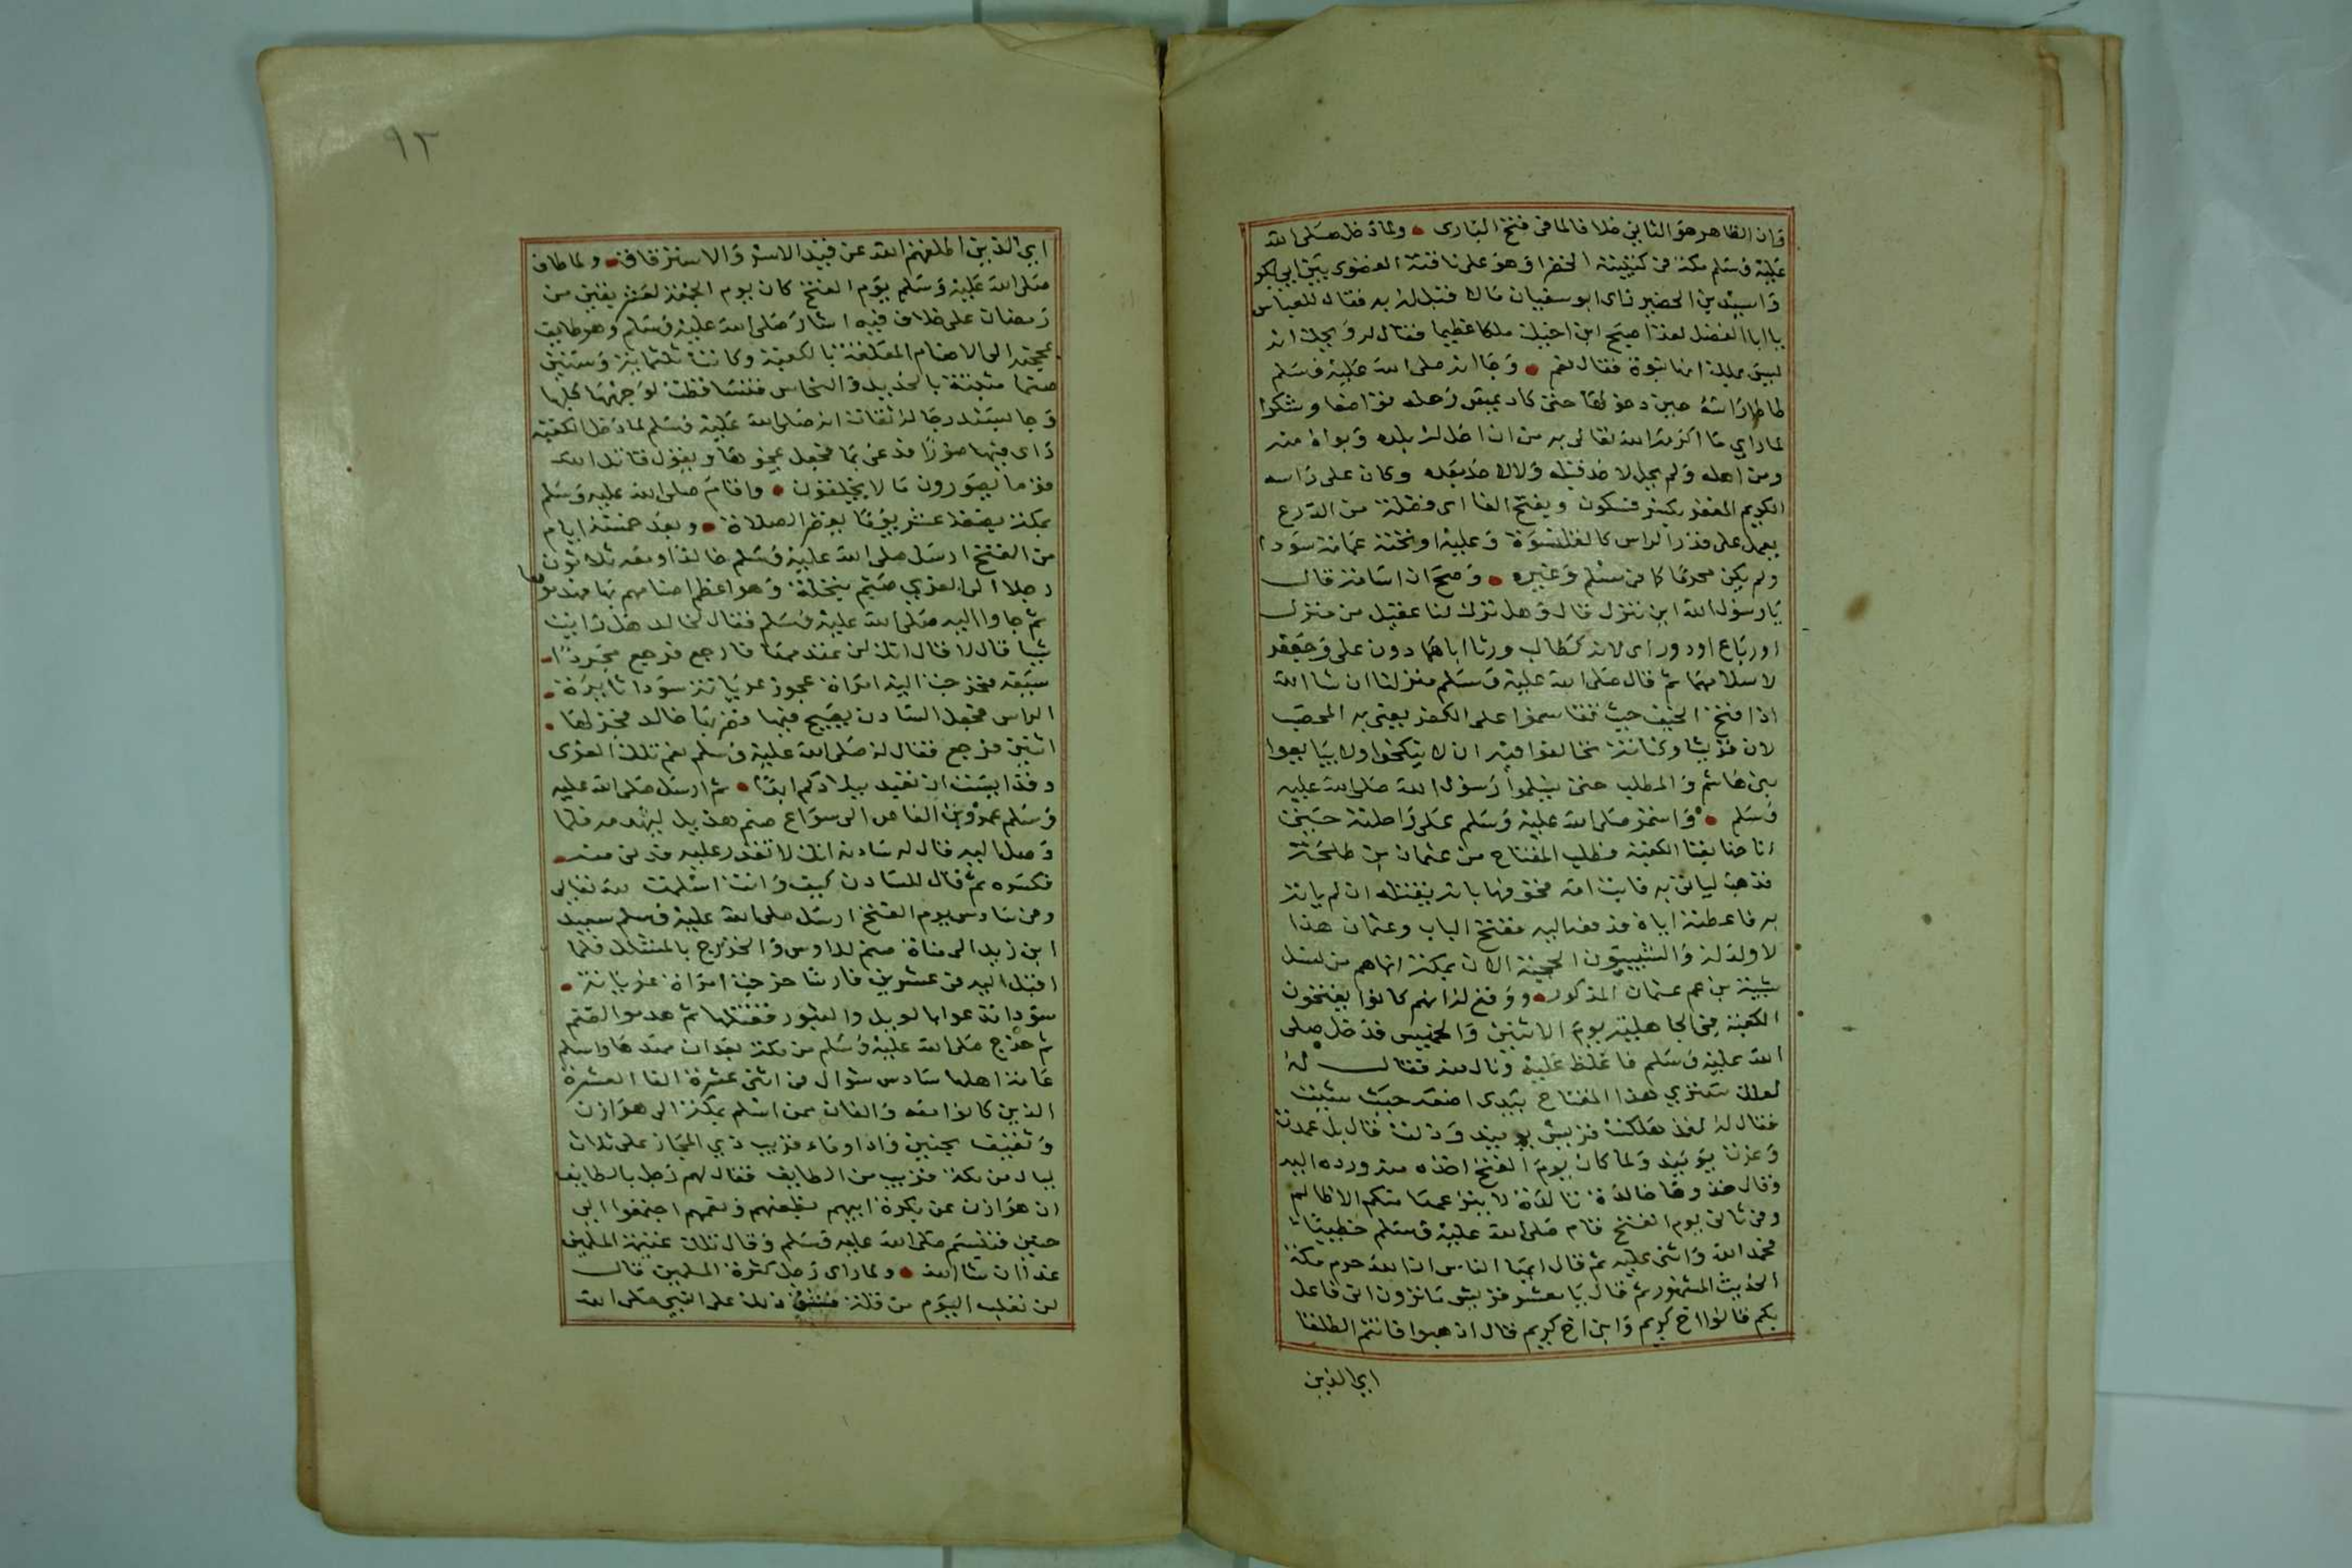 وان الظاهر هو الثاني خلافا لما في فتح الباري ولما دخل صلى الله
عليه وسلم مكة في كتيبته الخضرا وهو على ناقته القصوى بين ابي بكر
واسيد بن الحضير راى ابو سفيان مالا قبل له به فقال للعباس
يا ابا الفضل لقد اصبح ابن اخيك ملكا عظيما فقال له ويحك انه
ليس بملك انها نبوة فقال نعم وجا انه صلى الله عليه وسلم
طاطا راسه حين دخولها حتى كاد يمس رحله تواضعا وشكرا
لما راي ما اكرمه الله تعالى به من ان احل له بلده وبواه منه
ومن اهله ولم يحل لاحد قبله ولا لاحد بعده وكان على راسه
الكريم المغفر بكسر فسكون وبفتح الفا اى فضلة من الدرع
يعمل على قدر الراس كالقلنسوة وعليه او تحته عمامة سودا
ولم يكن محرما كما في مسلم وغيره وصح ان اسامة قال
يا رسول الله اين تنزل قال وهل ترك لنا عقيل من منزل
او رباع او دور اى لانه كطالب ورثا اباهما دون على وجعفر
لاسلامهما ثم قال صلى الله عليه وسلم منزلنا ان شا الله
اذا فتح الخيف حيث تقاسموا على الكفر يعني به المحصب
لان قريشا وكنانة تحالفوا فيه ان لا يتكحوا ولا يبايعوا
بني هاشم والمطلب حتى يسلموا رسول الله صلى الله عليه
وسلم واستمر صلى الله عليه وسلم على راحلته حتى
اناخ بفنا الكعبة فطلب المفتاح من عثمان بن طلحة
فذهب لياتي به فابت امه فخوفها بانه يقتله ان لم ياته
به فاعطته اياه فدفعه اليه ففتح الباب وعثمان هذا
لا ولد له والشيبيون الحجبة الان بمكة انما هم من نسل
شيبة بن عم عثمان المذكور ووقع له انهم كانوا يفتحون
الكعبة في الجاهلية يوم الاثنين والخميس فدخل صلى
الله عليه وسلم فاغلظ عليه ونال منه فقال له
لعلك سترى هذا المفتاح بيدى اضعه حيث شيت
فقال له لقد هلكت قريش يوميذ وذلت قال بل عمرت
وعزت يوميذ ولما كان يوم الفتح اخذه منه ورده اليه
وقال خذوها خالدة تالدة لا ينزعها منكم الا ظالم
وفي ثاني يوم الفتح قام صلى الله عليه وسلم خطيبا
فحمد الله واثنى عليه ثم قال ايها الناس ان الله حرم مكة
الحديث المشهور ثم قال يا معشر قريش ما ترون اني فاعل
بكم قالوا اخ كريم وابن اخ كريم قال اذهبوا فانتم الطلقا
اي الذين
٩٣
اي الذين اطلقهم الله عن قيد الاسر والاسترقاق ولما طاف
صلى الله عليه وسلم يوم الفتح كان يوم الجمعة لعشر بقين من
رمضان على خلاف فيه اشار صلى الله عليه وسلم وهو طايف
بمحجنه الى الاصنام المعلقة بالكعبة وكانت ثلثماية وستين
صنما مثبتة بالحديد والنحاس فتساقطت لوجهها كلها
وجا بسند رجاله ثقات انه صلى الله عليه وسلم لما دخل الكعبة
راى فيها صورا فدعى بما فجعل يمحوها ويقول قاتل الله
قوما يصورون ما لا يخلقون واقام صلى الله عليه وسلم
بمكة بضعة عشر يوما يقصر الصلاة وبعد خمسة ايام
من الفتح ارسل صلى الله عليه وسلم خالدا ومعه ثلاثون
رجلا الى العزي صنم بنخلة وهو اعظم اصنامهم بها فهدموها
ثم جاوا اليه صلى الله عليه وسلم فقال لخالد هل رايت
شيا قال لا قال انك لن تهدمها فارجع فرجع مجردا
سيفه فخرجت اليه امراة عجوز عريانة سودا ثايرة
الراس فجعل السادن يصيح فيها فضربها خالد فجزلها
اثنين فرجع فقال له صلى الله عليه وسلم نعم تلك العزى
وقد ايست ان تعبد ببلادكم ابدا ثم ارسل صلى الله عليه
وسلم عمرو بن العاص الى سواع صنم هذيل ليهدمه فلما
وصل اليه قال له سادنه انك لا تقدر عليه فدنى منه
فكسره ثم قال للسادن كيف وانت اسلمت لله تعالى
وفي سادس يوم الفتح ارسل صلى الله عليه وسلم سعيد
ابن زيد الى مناة صنم للاوس والخزرج بالمشلل فلما
اقبل اليه في عشرين فارسا خرجت امراة عريانة
سودا تدعوا بالويل والثبور فقتلها ثم هدموا الصنم
ثم خرج صلى الله عليه وسلم من مكة بعد ان مهدها واسلم
عامة اهلها سادس شوال في اثنى عشرة الفا العشرة
الذين كانوا معه والفان ممن اسلم بمكة الى هوازن
وثقيف بحنين واد اوماء قريب ذي المجاز على ثلاث
ليال من مكة قريب من الطايف فقال لهم رجل بالطايف
ان هوازن عن بكرة ابيهم بظعنهم ونعمهم اجتمعوا الى
حنين فتبسم صلى الله عليه وسلم وقال تلك غنيمة المسلمين
غدا ان شا الله ولما راى رجل كثرة المسلمين قال
لن نغلب اليوم من قلة فشق ذلك على النبي صلى الله